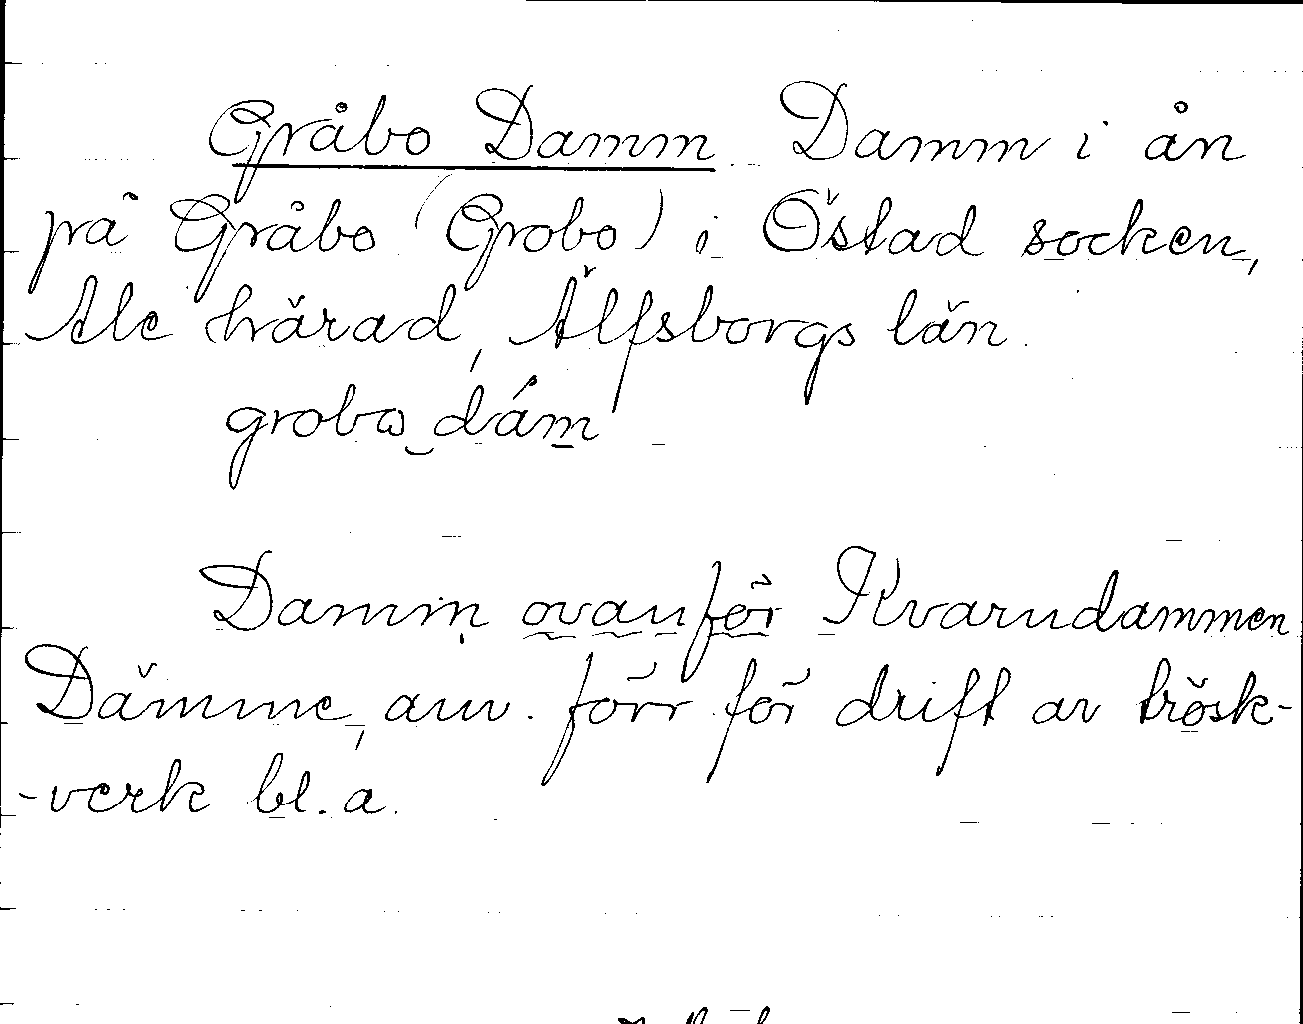 Gråbo Damm. Damm i ån
på Gråbo (Grobo) i Östad socken,
Ale härad, Älfsborgs län.
grobω dám
Damm ovanför Kvarndammen
Dämme, anv. förr för drift av trösk-
-verk bl. a.